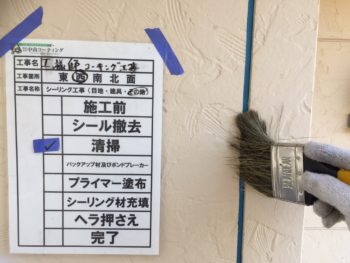 田中商コーティング
工事名 工事 コーキング工事
工事箇所 東 西 南 北 面
工事名称 シーリング工事（目地・建具・その他）
施工前
シール撤去
清掃
バックアップ材及びボンドブレーカー
プライマー塗布
シーリング材充填
ヘラ押さえ
完了